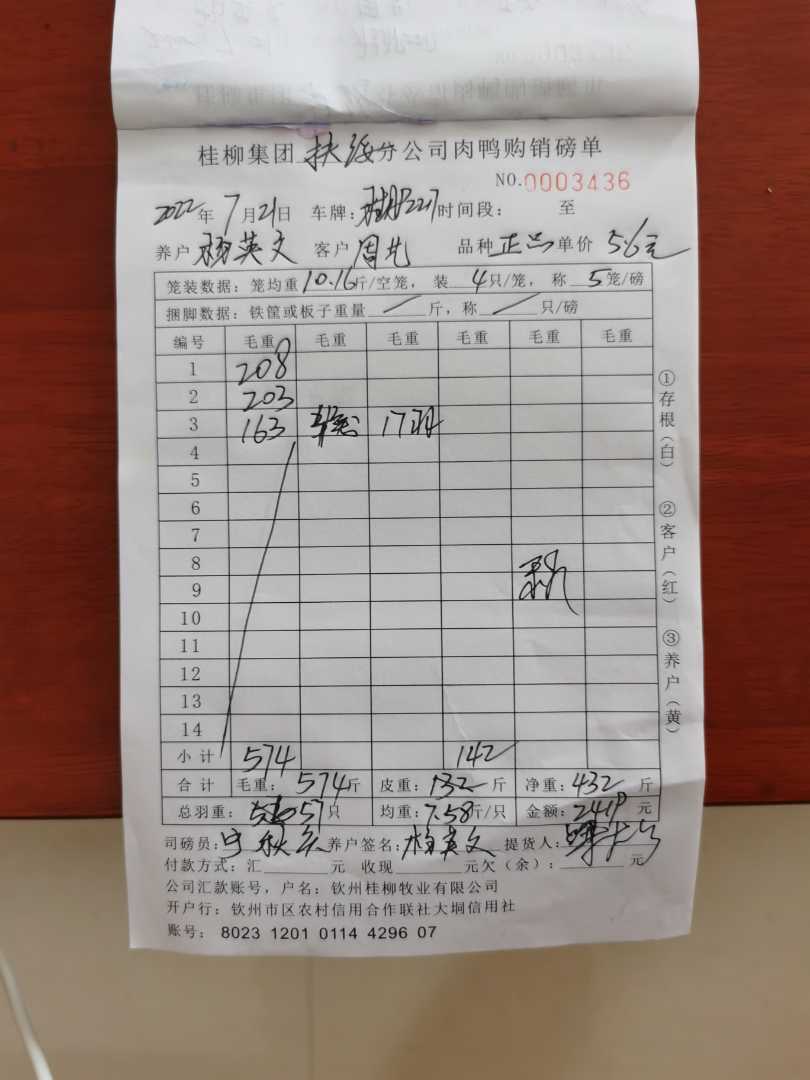 桂柳集团扶绥分公司肉鸭购销磅单
NO.0003436
2022年7月21日 车牌: 时间段: 至
养户 杨英文 客户 周 品种 正品 单价 5.6元
笼装数据: 笼均重10.16斤/空笼, 装 4只/笼, 称 5笼/磅
捆脚数据: 铁筐或板子重量 / 斤, 称 / 只/磅
编号 毛重 毛重 毛重 毛重 毛重 毛重
1 208
2 203
3 163 17羽
4
5
6
7
8
9
10
11
12
13
14
小计 574 142
合计 毛重: 574斤 皮重: 斤 净重: 432斤
总羽重: 57只 均重: 7.58斤/只 金额: 2419元
司磅员: 养户签名: 杨英文 提货人:
付款方式: 汇 元 收现 元欠(余): 元
公司汇款账号, 户名: 钦州桂柳牧业有限公司
开户行: 钦州市区农村信用合作联社大垌信用社
账号: 8023 1201 0114 4296 07
①存根(白)
②客户(红)
③养户(黄)